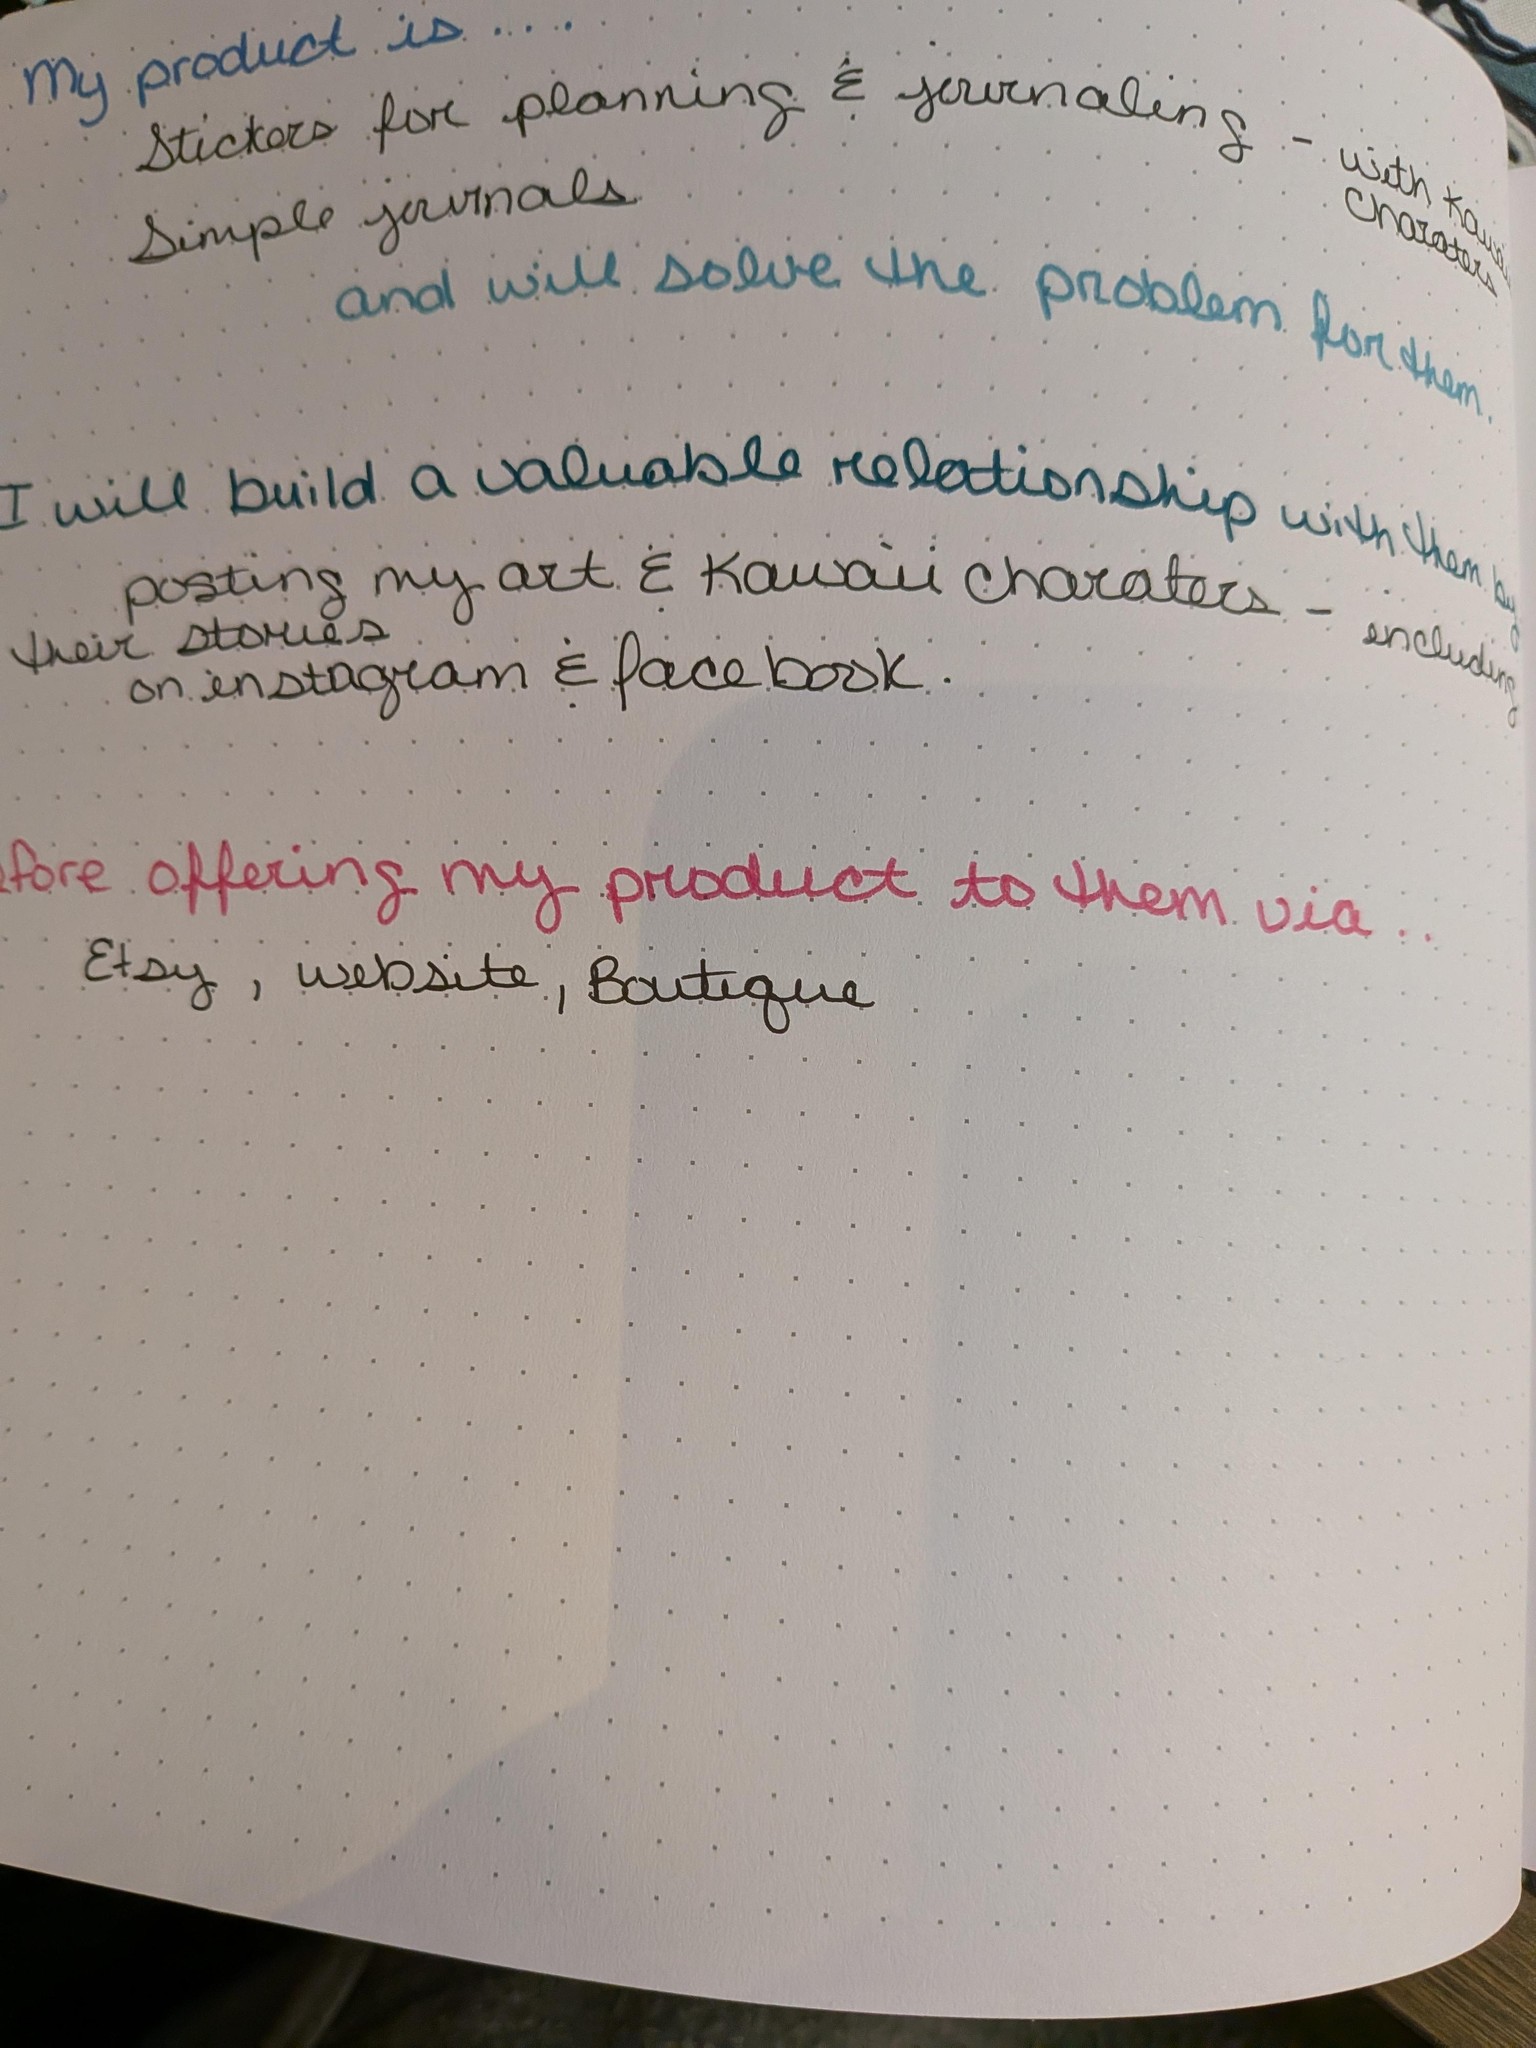 My product is ....
Stickers for planning & journaling - with Kawaii
Charaters
Simple journals
and will solve the problem for them.
I will build a valuable relationship with them by
posting my art & Kawaii Charaters - including
their stories
on instagram & facebook.
efore offering my product to them via ..
Etsy, website, Boutique